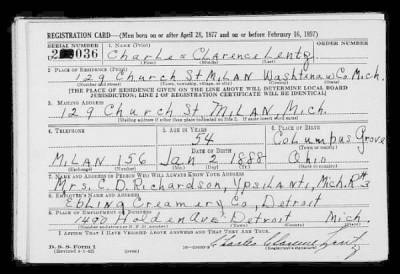 REGISTRATION CARD—(Men born on or after April 28, 1877 and on or before February 16, 1897)
SERIAL NUMBER 1. NAME (Print) ORDER NUMBER
036 Charles Clarence Lentz
2. PLACE OF RESIDENCE (Print)
129 Church St MILAN Washtenaw Co Mich.
[THE PLACE OF RESIDENCE GIVEN ON THE LINE ABOVE WILL DETERMINE LOCAL BOARD
JURISDICTION; LINE 2 OF REGISTRATION CERTIFICATE WILL BE IDENTICAL]
3. MAILING ADDRESS
129 Church St MILAN Mich.
[Mailing address if other than place indicated on line 2. If same insert word same]
4. TELEPHONE 5. AGE IN YEARS 6. PLACE OF BIRTH
54 Columbus Grove
MILAN 156 Jan 2 1888 Ohio
7. NAME AND ADDRESS OF PERSON WHO WILL ALWAYS KNOW YOUR ADDRESS
Mrs. C. D. Richardson, YPSILANTI, Mich. R#3
8. EMPLOYER'S NAME AND ADDRESS
EBLING Creamery Co, Detroit
9. PLACE OF EMPLOYMENT OR BUSINESS
1490 Holden Ave Detroit Mich.
I AFFIRM THAT I HAVE VERIFIED ABOVE ANSWERS AND THAT THEY ARE TRUE.
D. S. S. Form 1
(Revised 4-1-42)
Charles Clarence Lentz